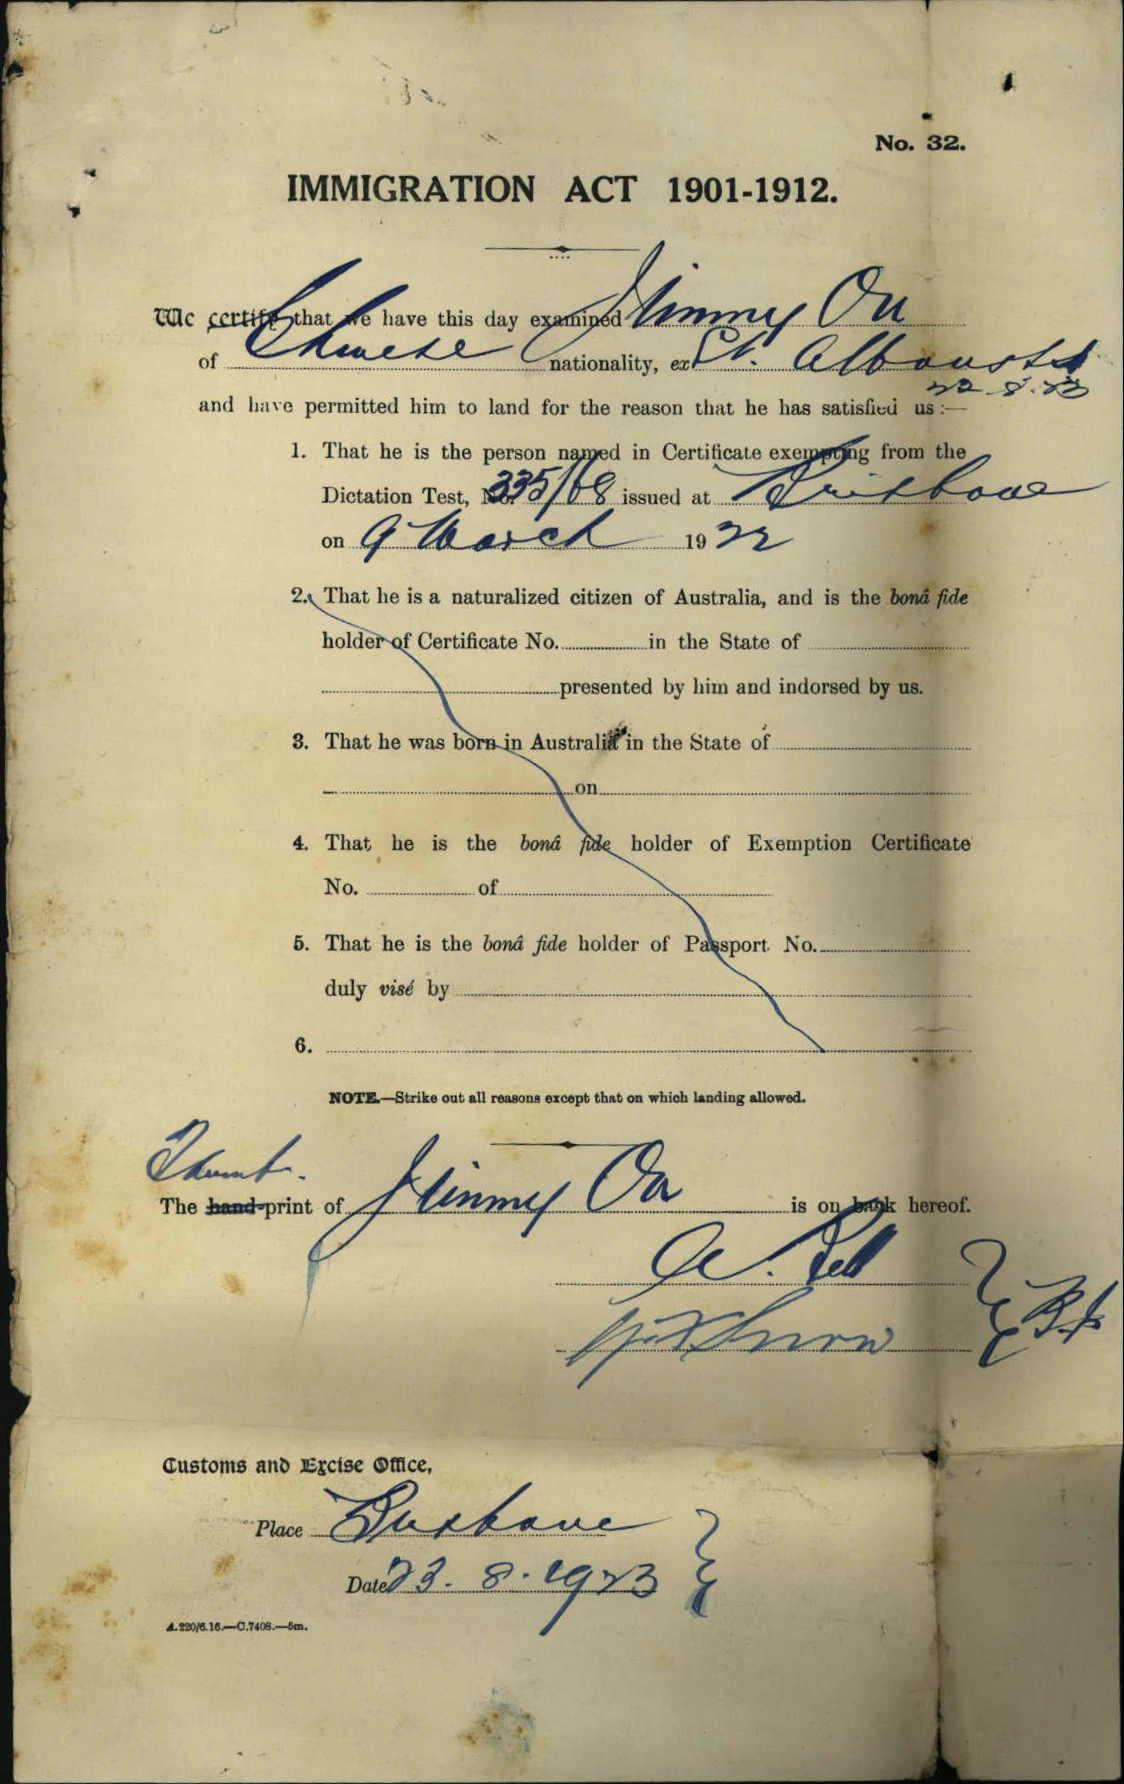 No. 32.
IMMIGRATION ACT 1901-1912.
We certify that we have this day examined Jimmy On
of Chinese nationality, ex St. Albans
22.8.23
and have permitted him to land for the reason that he has satisfied us :—
1. That he is the person named in Certificate exempting from the
Dictation Test, No. 335/68 issued at Brisbane
on 9 March 1922
2. That he is a naturalized citizen of Australia, and is the bonâ fide
holder of Certificate No. in the State of
presented by him and indorsed by us.
3. That he was born in Australia in the State of
on
4. That he is the bonâ fide holder of Exemption Certificate
No. of
5. That he is the bonâ fide holder of Passport No.
duly visé by
6.
NOTE.—Strike out all reasons except that on which landing allowed.
Thumb.
The hand-print of Jimmy On is on back hereof.
Bell
Customs and Excise Office,
Place Brisbane
Date 23.8.1923
A.220/6.16.—C.7408.—5m.